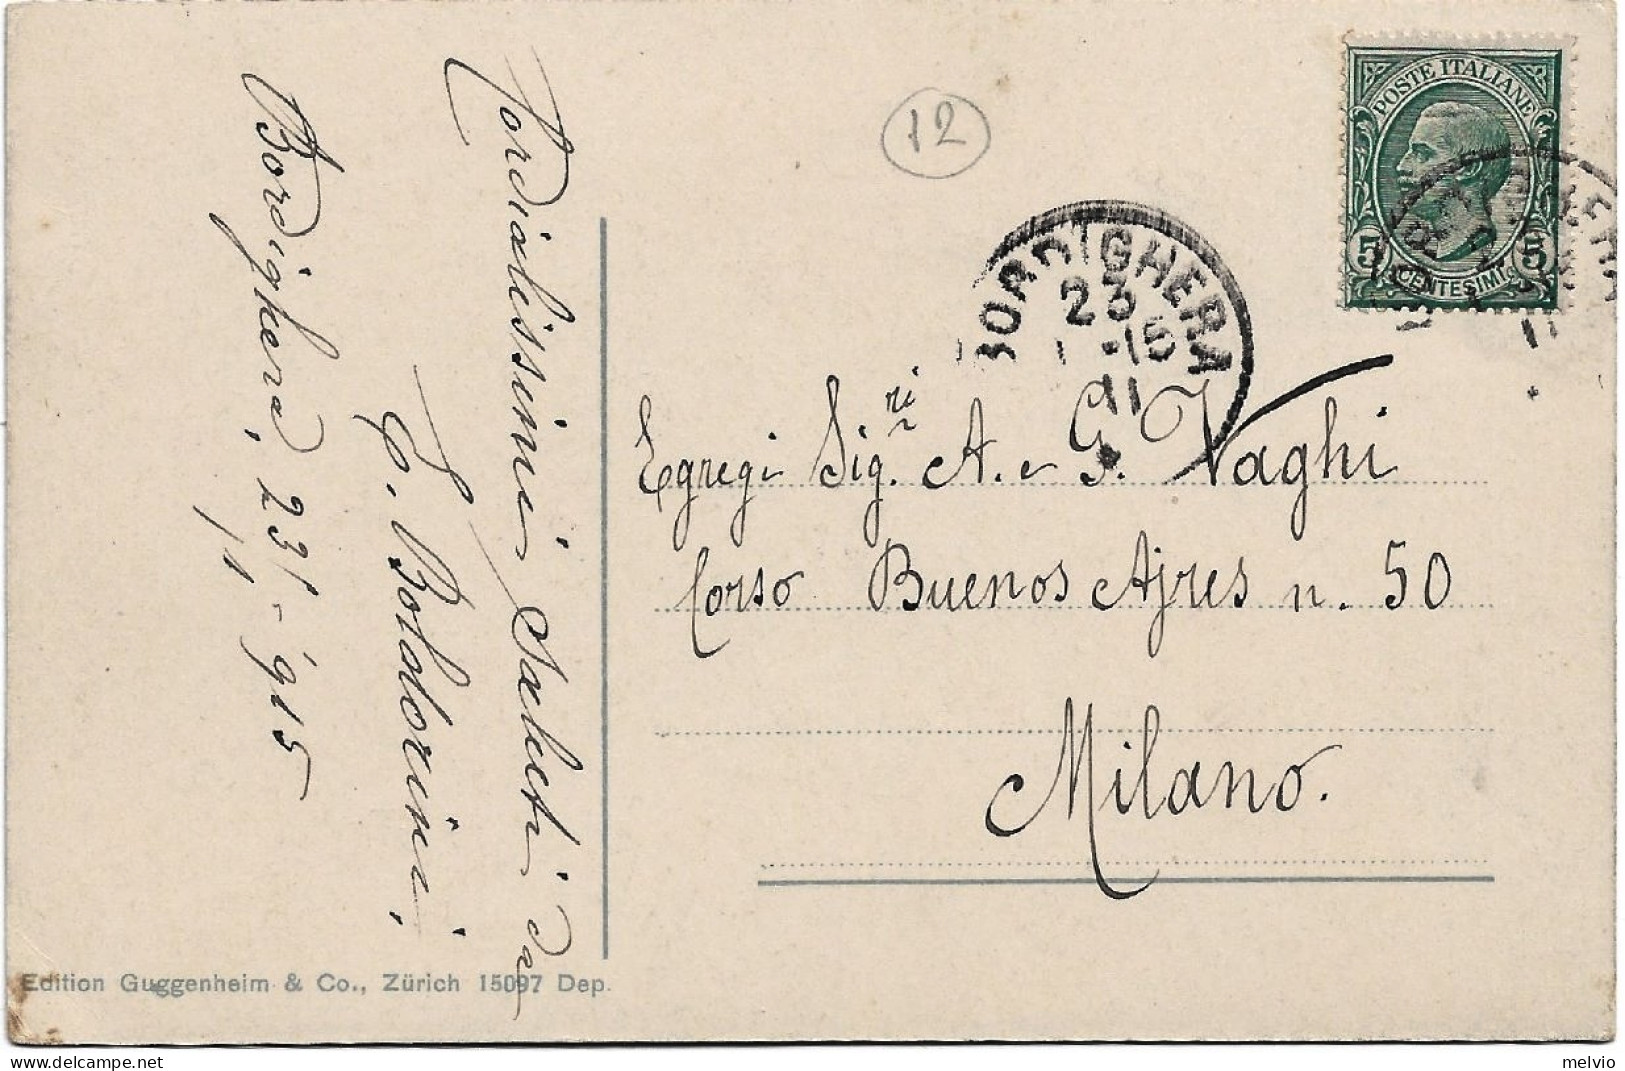 12
POSTE ITALIANE
5 CENTESIMI 5
BORDIGHERA
23
11
Cordialissimi Saluti da
Bordighera, 23/11 - 915
Egregi Sig.ri A. e G. Vaghi
Corso Buenos Ajres n. 50
Milano.
Edition Guggenheim & Co., Zürich 15097 Dep.
melvio